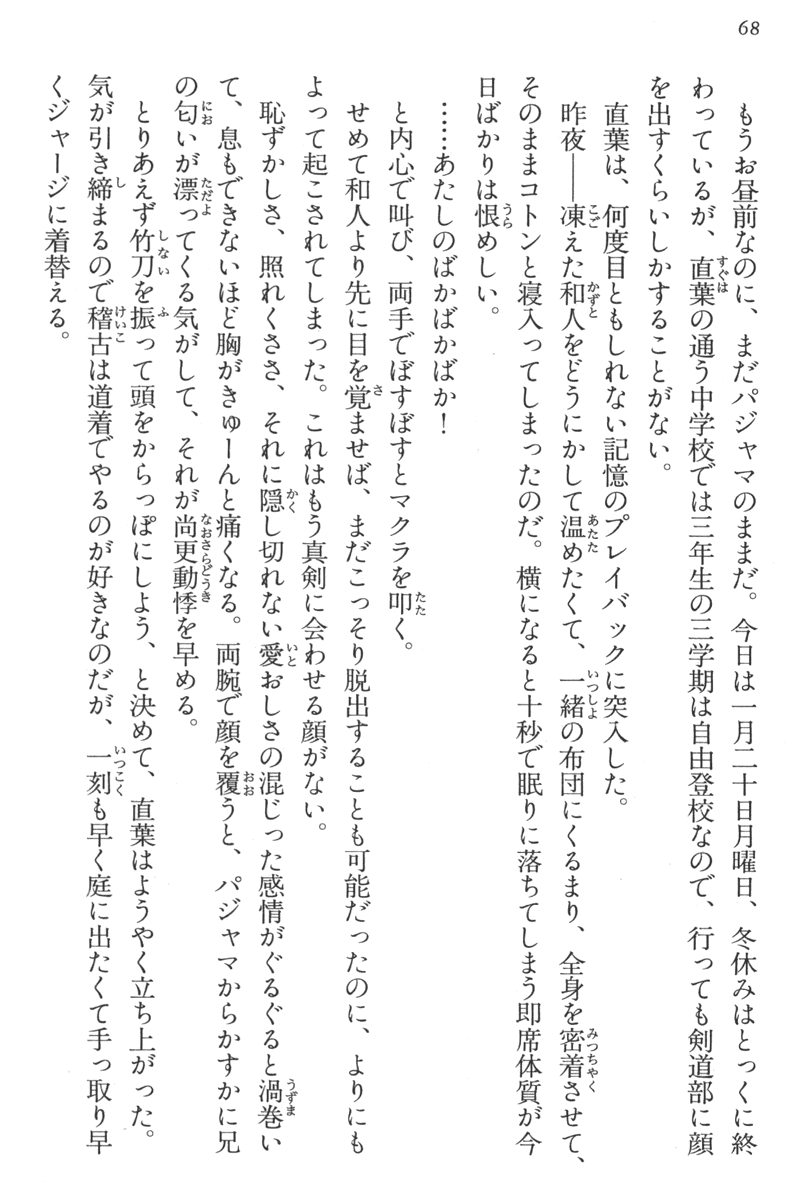 68
もうお昼前なのに、まだパジャマのままだ。今日は一月二十日月曜日、冬休みはとっくに終
わっているが、直葉の通う中学校では三年生の三学期は自由登校なので、行っても剣道部に顔
を出すくらいしかすることがない。
直葉は、何度目ともしれない記憶のプレイバックに突入した。
昨夜――凍えた和人をどうにかして温めたくて、一緒の布団にくるまり、全身を密着させて、
そのままコトンと寝入ってしまったのだ。横になると十秒で眠りに落ちてしまう即席体質が今
日ばかりは恨めしい。
……あたしのばかばかばか！
と内心で叫び、両手でぼすぼすとマクラを叩く。
せめて和人より先に目を覚ませば、まだこっそり脱出することも可能だったのに、よりにも
よって起こされてしまった。これはもう真剣に会わせる顔がない。
恥ずかしさ、照れくささ、それに隠し切れない愛おしさの混じった感情がぐるぐると渦巻い
て、息もできないほど胸がきゅーんと痛くなる。両腕で顔を覆うと、パジャマからかすかに兄
の匂いが漂ってくる気がして、それが尚更動悸を早める。
とりあえず竹刀を振って頭をからっぽにしよう、と決めて、直葉はようやく立ち上がった。
気が引き締まるので稽古は道着でやるのが好きなのだが、一刻も早く庭に出たくて手っ取り早
くジャージに着替える。